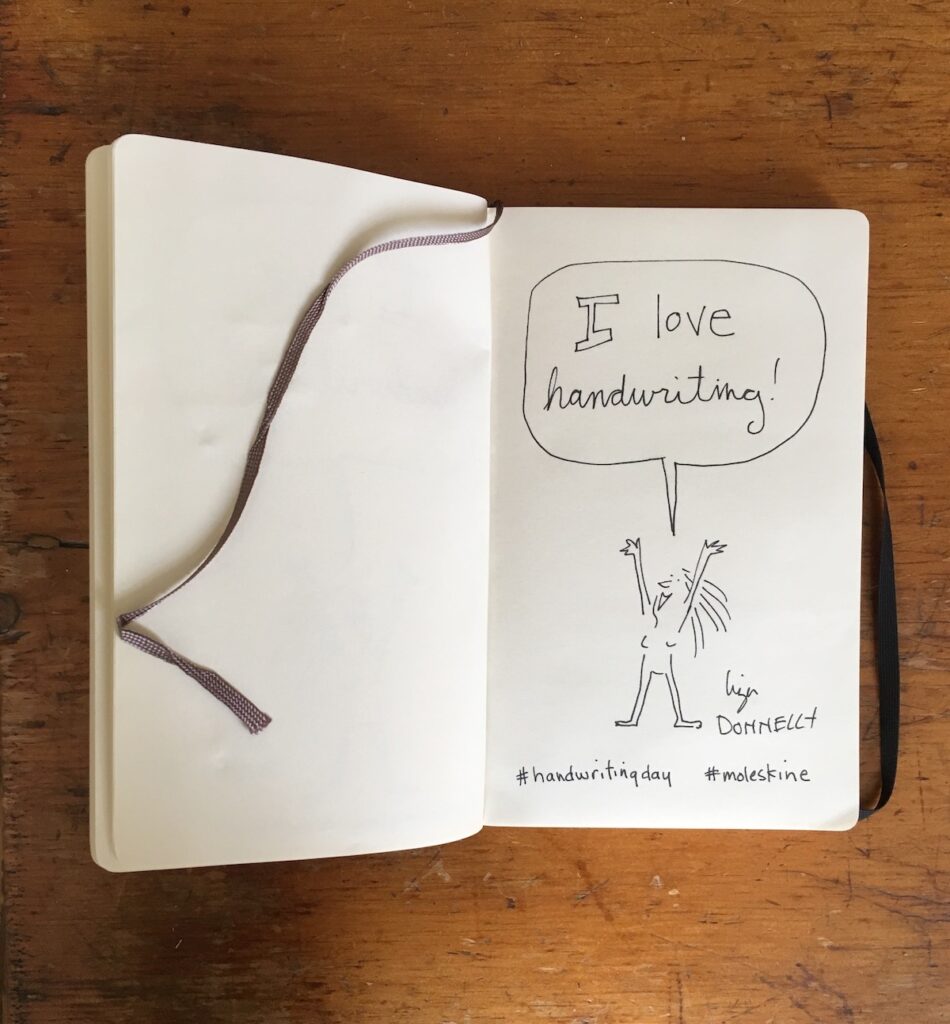 I love
handwriting!
liza
DONNELLY
#handwritingday #moleskine